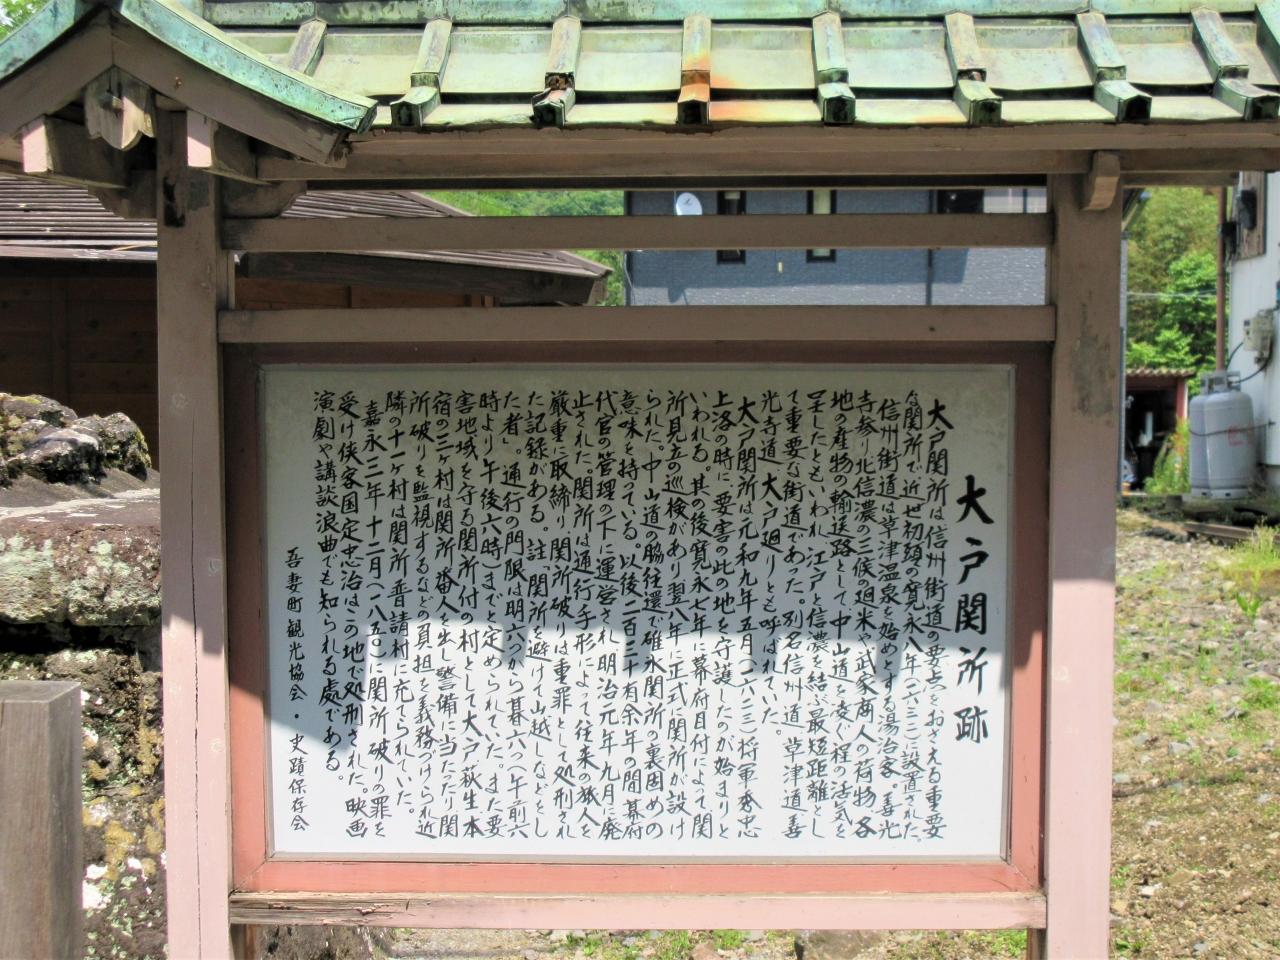 大戸関所跡
大戸関所は信州街道の要点をおさえる重要
な関所で近世初頭の寛永八年(一六三一)に設置された。
信州街道は草津温泉を始めとする湯治客。善光
寺参り北信濃の三候の廻米や武家商人の荷物各
地の産物の輸送路として、中山道を凌ぐ程の活気を
呈したともいわれ江戸と信濃を結ぶ最短距離とし
て重要な街道であった。別名信州道、草津道、善
光寺道、大戸廻りとも呼ばれていた。
大戸関所は元和九年五月(一六二三)将軍秀忠
上洛の時に、要害の此の地を守護したのが始まりと
いわれる。其の後寛永七年に幕府目付によって関
所見立の巡検があり翌八年に正式に関所が設け
られた。中山道の脇往還で碓氷関所の裏固めの
意味を持っている。以後二百三十有余年の間幕府
代官の管理の下に運営され明治元年九月に廃
止された。関所は通行手形によって往来の旅人を
厳重に取締り関所破りは重罪として処刑され
た記録がある。註「関所を避けて山越しなどをし
た者」。通行の門限は明六つから暮六つ(午前六
時より午後六時)までと定められていた。また要
害地域を守る関所付の村として大戸萩生本
宿の三ケ村は関所番人を出し警備に当たり関
所破りを監視するなどの負担を義務づけられ近
隣の十一ケ村は関所普請村に充てられていた。
嘉永三年十二月(一八五〇)に関所破りの罪を
受け侠客国定忠治はこの地で処刑された。映画
演劇や講談浪曲でも知られる処である。
吾妻町観光協会・史蹟保存会